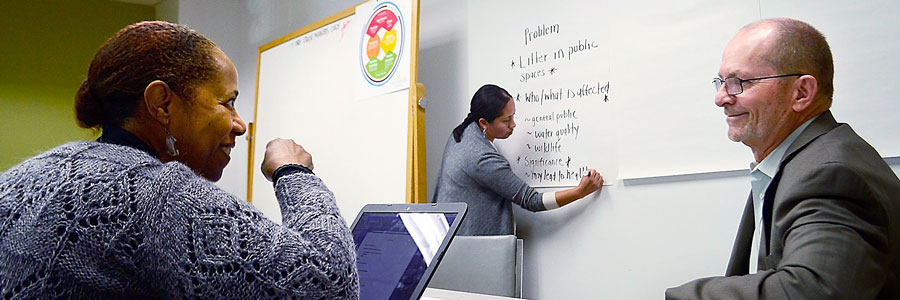 Problem
* Litter in public
spaces *
* Who/what is affected *
~ general public
~ water quality
~ wildlife
* Significance *
~ may lead to health